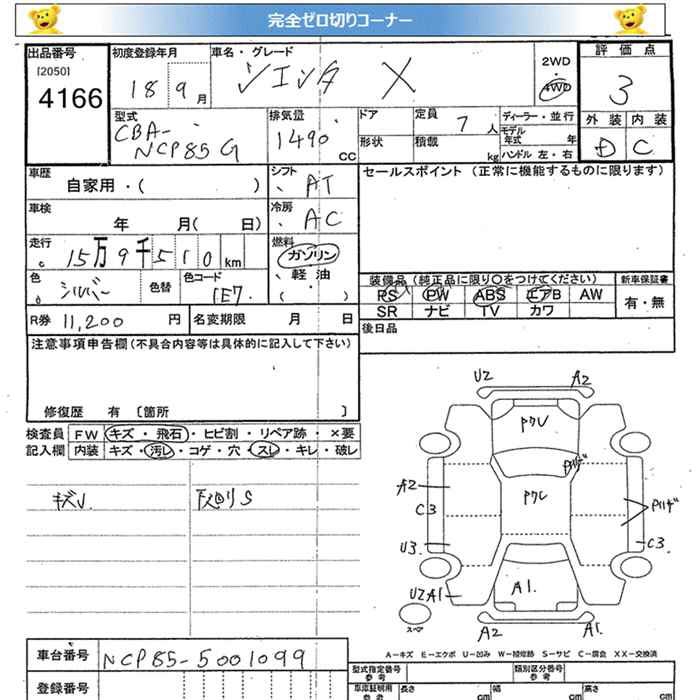 完全ゼロ切りコーナー
出品番号
[2050]
4166
初度登録年月
18 9月
車名・グレード
シエンタ X
2WD
・
4WD
評価点
3
外装 内装
D C
型式
CBA-
NCP85G
排気量
1490
CC
ドア
形状
定員
7人
積載
kg
ディーラー・並行
モデル
年式 年
ハンドル 左・右
車歴
自家用・( )
シフト
AT
車検
年 月( 日)
冷房
AC
走行
15万9千510km
燃料
ガソリン
・
軽油
( )
色
シルバー
色替
色コード
1E7
R券 11,200 円
名変期限 月 日
セールスポイント (正常に機能するものに限ります)
装備品 (純正品に限り○をつけてください)
新車保証書
PS PW ABS エアB AW
有・無
SR ナビ TV カワ
後日品
注意事項申告欄(不具合内容等は具体的に記入して下さい)
修復歴 有 〔箇所 〕
検査員
記入欄
FW キズ・飛石・ヒビ割・リペア跡・×要
内装 キズ・汚レ・コゲ・穴・スレ・キレ・破レ
U2 A2
アクレ
A2
C3
アクレ
U3
C3
U2A1
A1
スペア
A2 A1
A-キズ E-エクボ U-凹み W-補修跡 S-サビ C-腐食 XX-交換済
車台番号
NCP85-5001099
登録番号
型式指定番号
参考
類別区分番号
参考
車庫証明用
参考
長さ
cm
幅
cm
高さ
cm